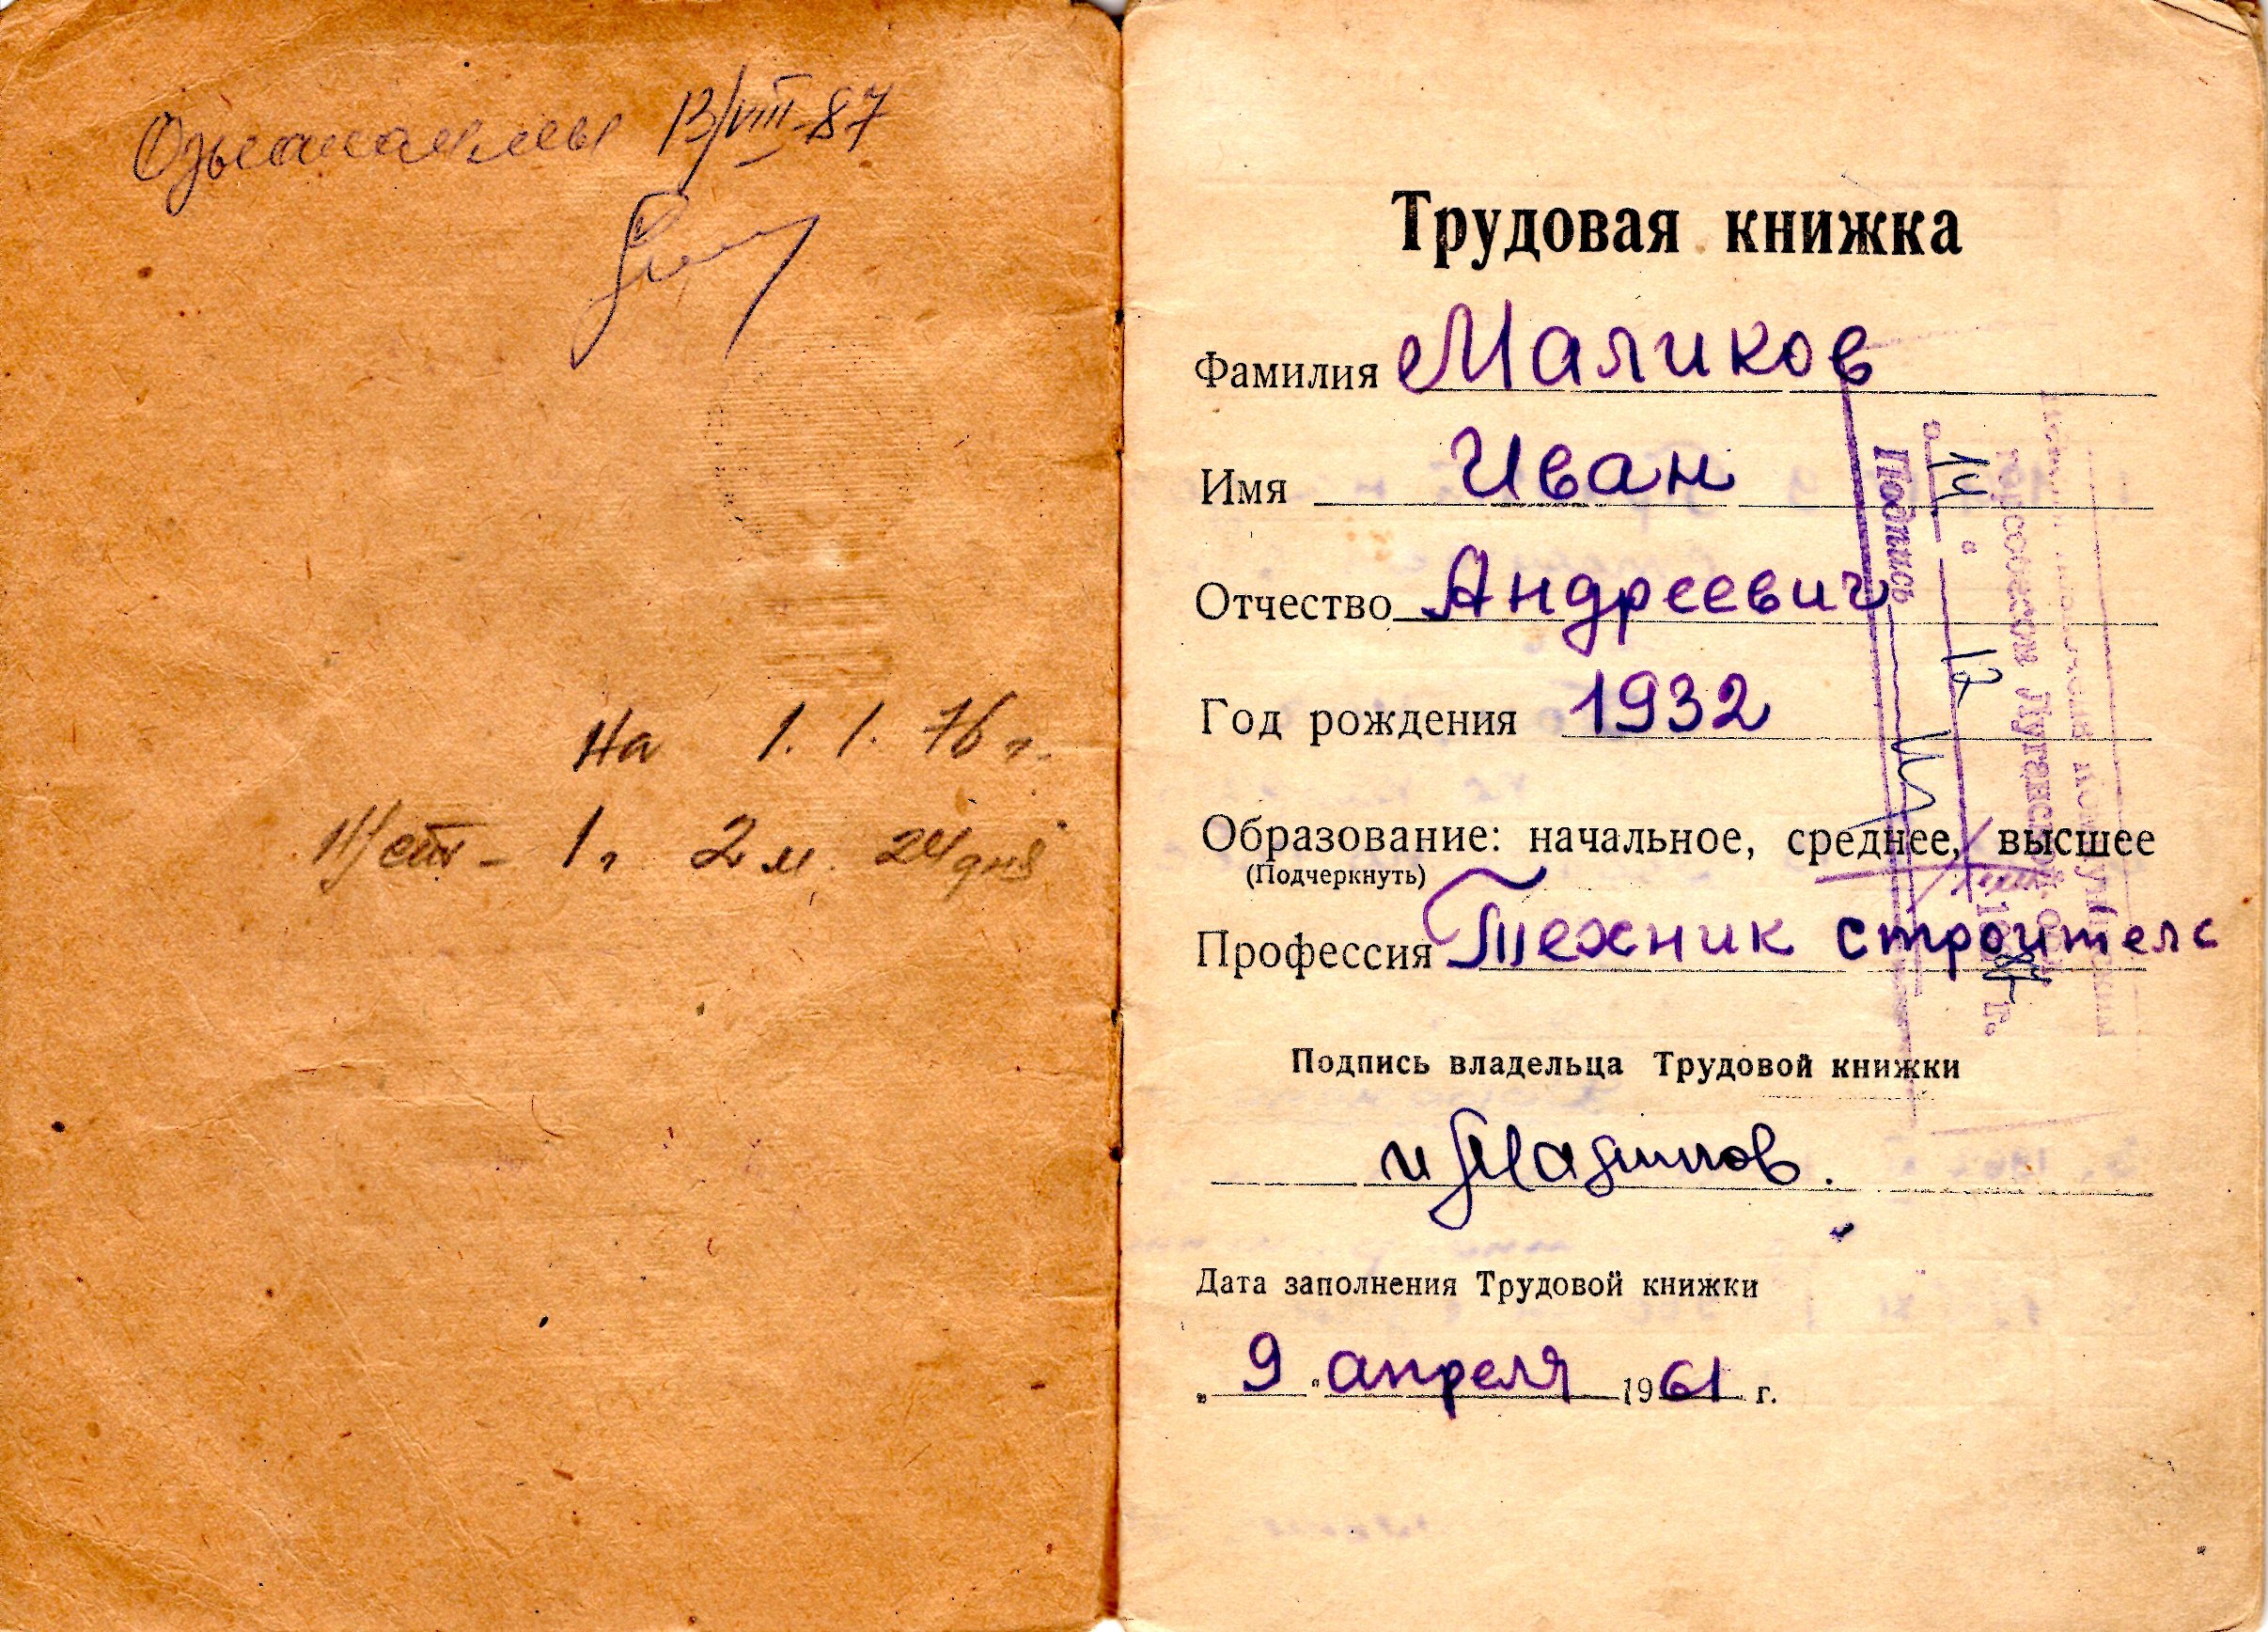 13/VIII-87
На 1. 1. 76 г.
1 г 2 м. 24 дня
Трудовая книжка
Фамилия Маликов
Имя Иван
Отчество Андреевич
Год рождения 1932
Образование: начальное, среднее, высшее
(Подчеркнуть)
Профессия Техник строитель
Подпись владельца Трудовой книжки
Дата заполнения Трудовой книжки
„ 9 " апреля 1961 г.
Подпись